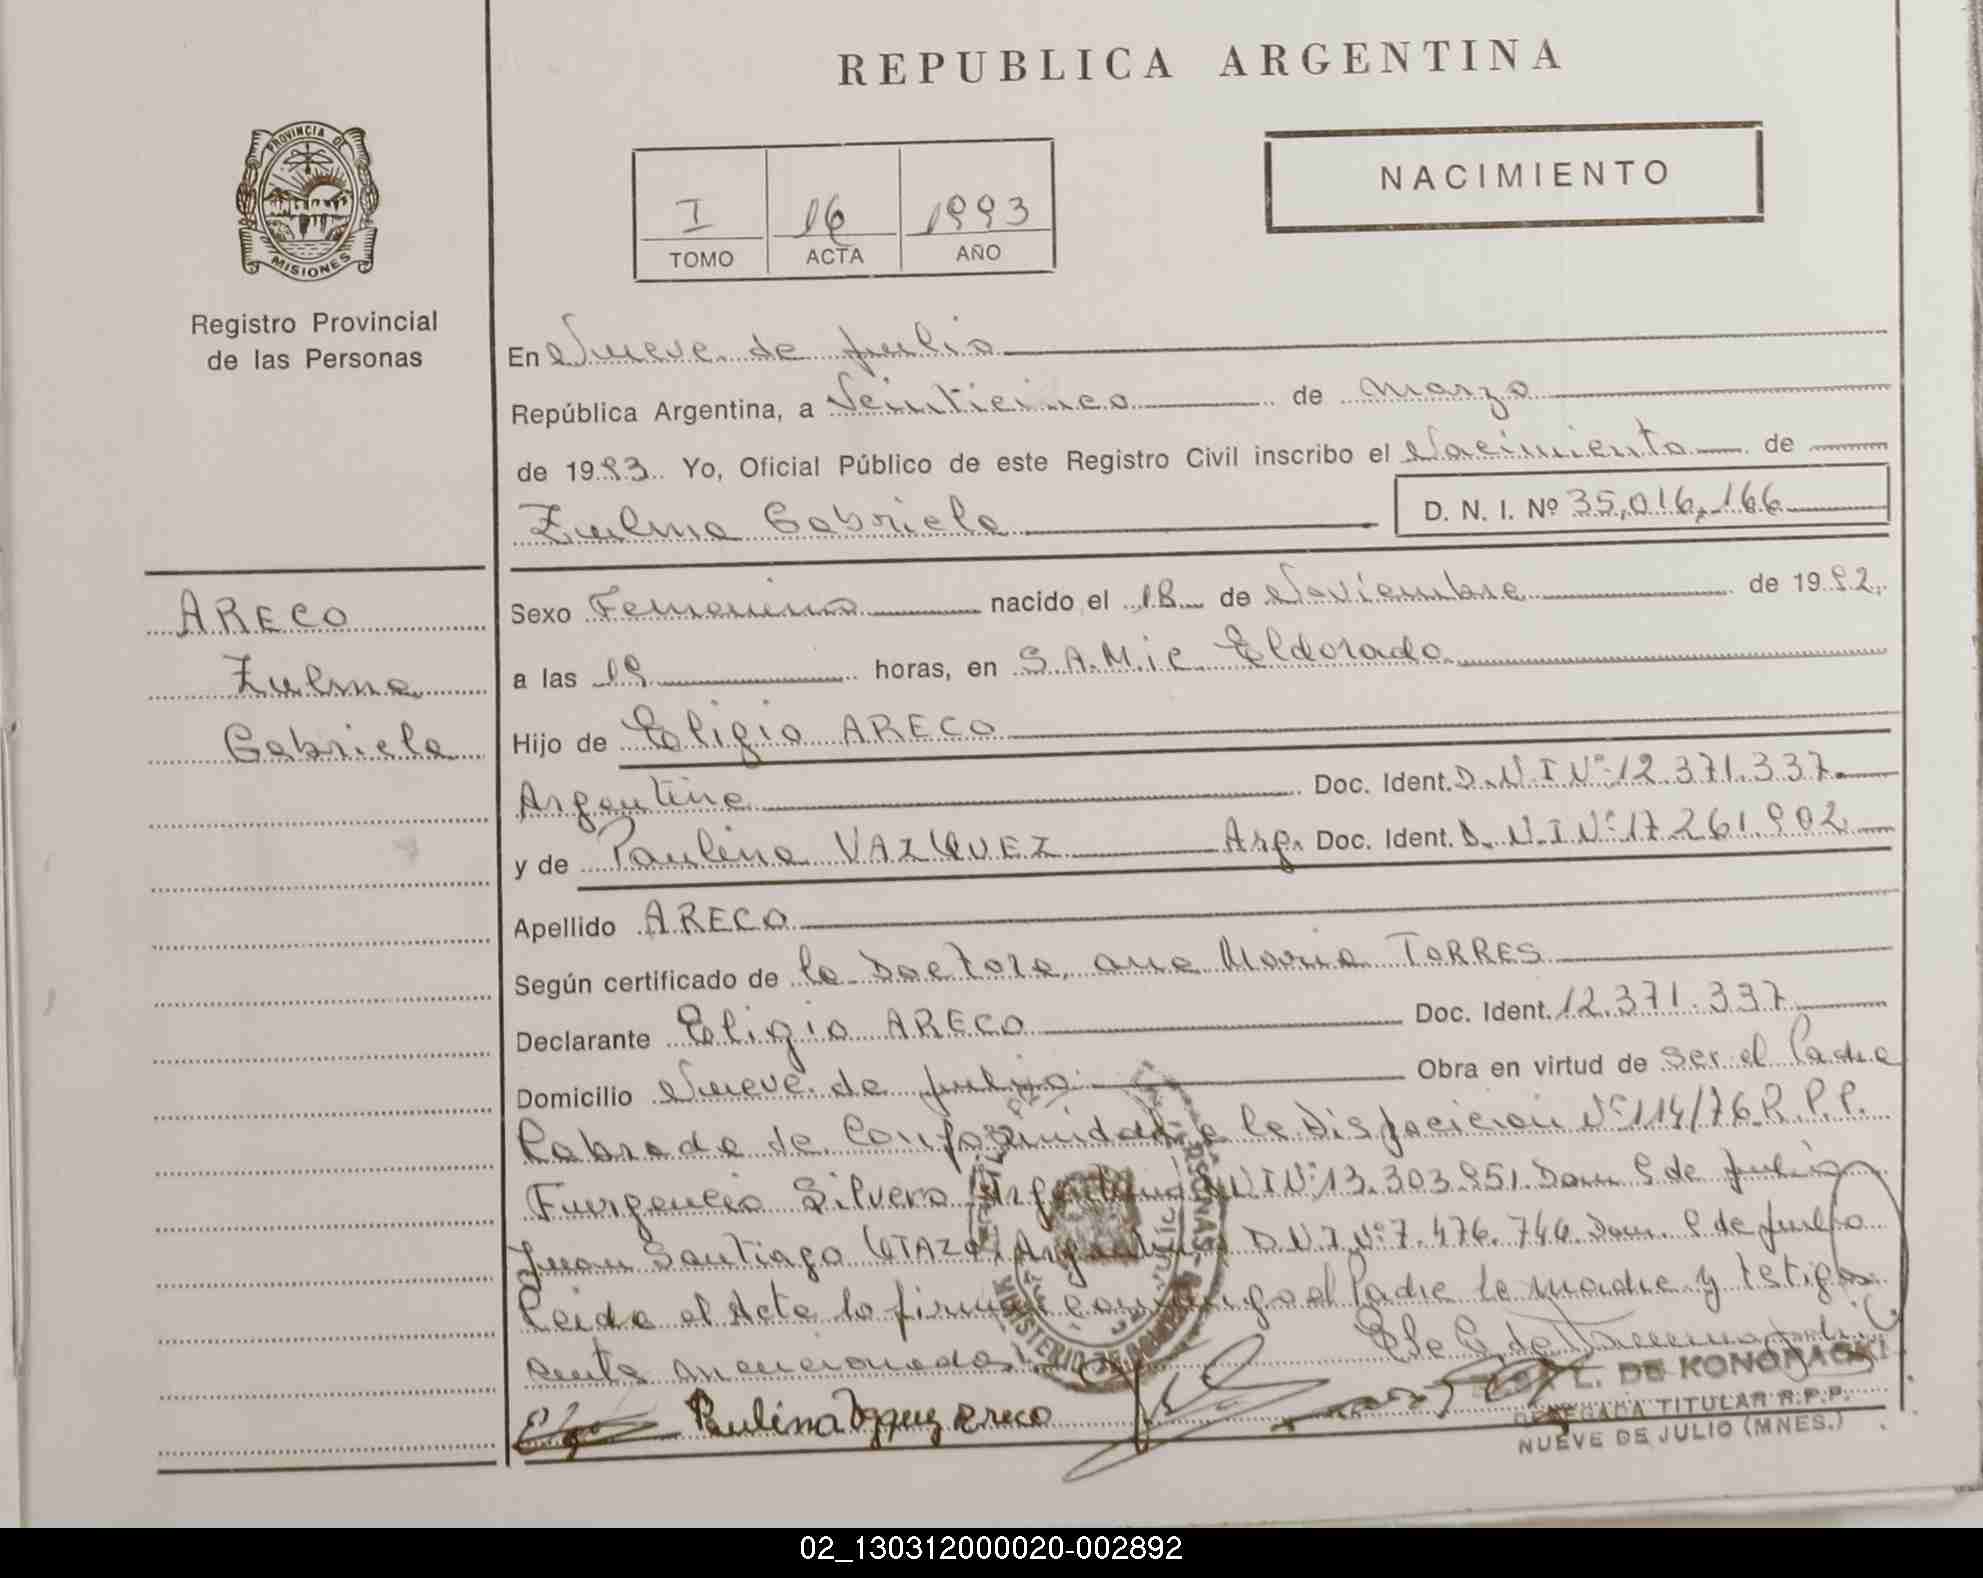 REPUBLICA ARGENTINA
PROVINCIA DE
MISIONES
Registro Provincial
de las Personas
I
16
1993
TOMO
ACTA
AÑO
NACIMIENTO
En Nueve de Julio
República Argentina, a Veinticinco de marzo
de 1993. Yo, Oficial Público de este Registro Civil inscribo el Nacimiento de
Zulma Gabriela
D. N. I. Nº 35,016,166
ARECO
Zulma
Gabriela
Sexo Femenino nacido el 18 de Noviembre de 1992.
a las 19 horas, en S.A.M.i.c. Eldorado
Hijo de Eligio ARECO
Argentino Doc. Ident. D.N.I Nº 12.371.337
y de Paulina VAZQUEZ Arg. Doc. Ident. D.N.I Nº 17.261.902
Apellido ARECO
Según certificado de la Doctora, Ana Maria TORRES
Declarante Eligio ARECO Doc. Ident. 12.371.337
Domicilio Nueve de Julio Obra en virtud de ser el Padre
Labrada de Conformidad a la Disposicion Nº 114/76 R.P.P.
Silvero Argentino D.N.I Nº 13.303.951. Dom 9 de Julio
Juan Santiago Argentino D.N.I Nº 7.476.746. Dom. 9 de Julio
Leida el Acta la firman conmigo el Padre la madre y testigos
Paulina Vazquez Areco
L. DE KONOPACKI
DELEGADA TITULAR R.P.P.
NUEVE DE JULIO (MNES.)
02_130312000020-002892